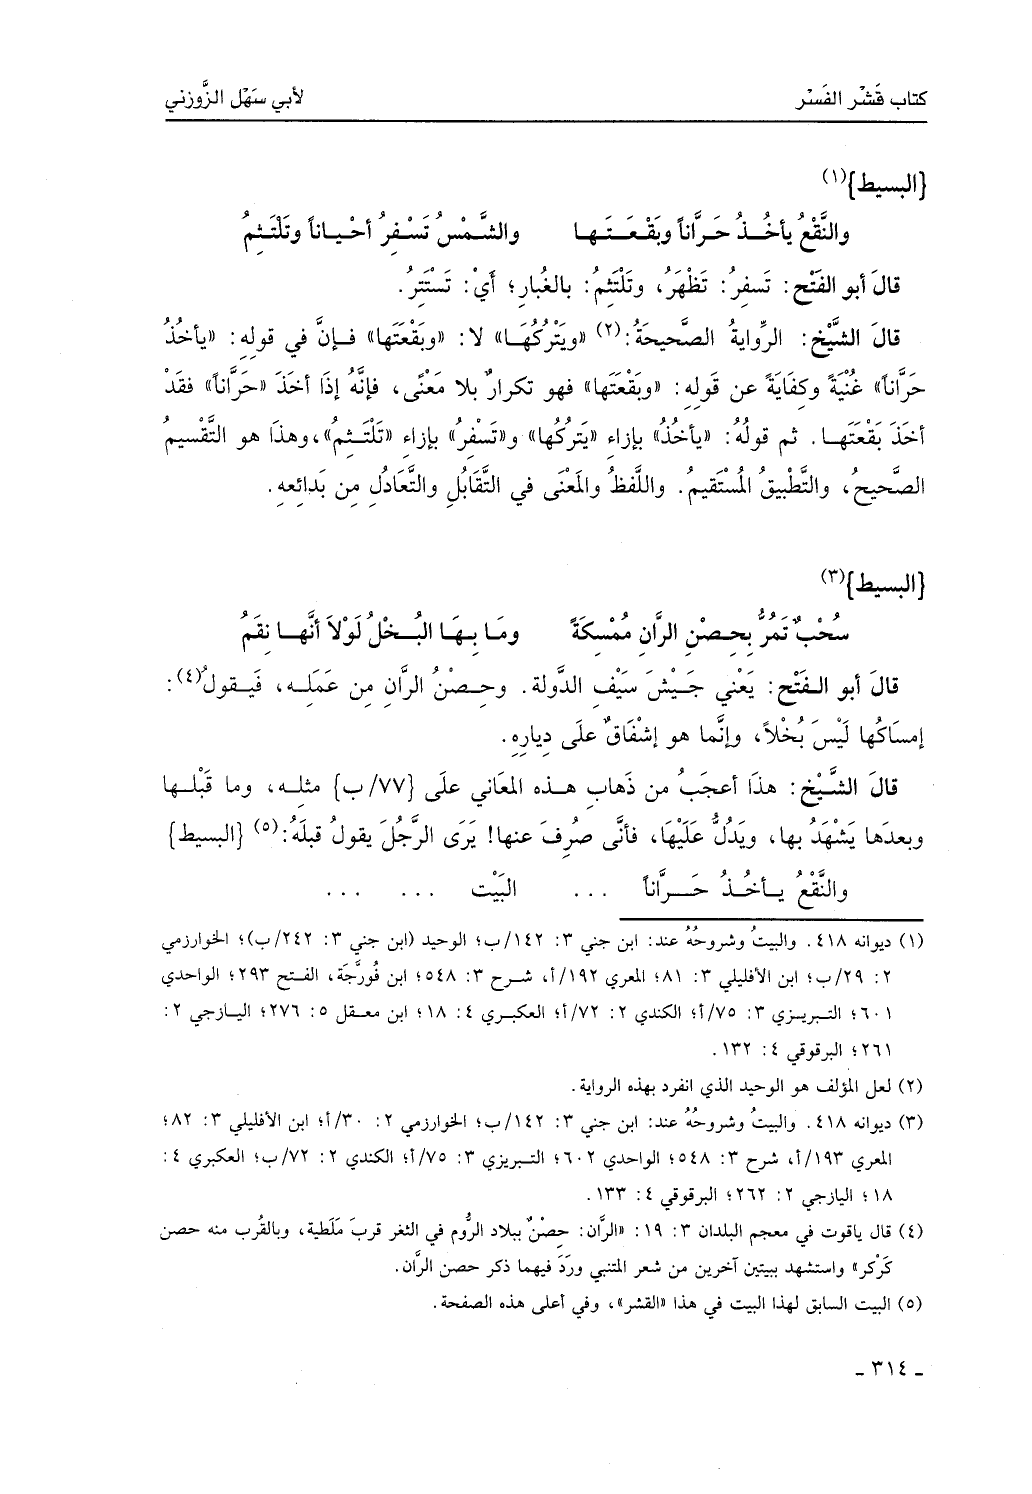 كتاب قَشْر الفَسْر لأبي سَهْل الزَّوزني
[البسيط](١)
والنَّقْعُ يأخُـذُ حَـرَّاناً وبَقْـعَـتَـهـا والشَّـمْسُ تَسْـفِـرُ أحْـيـاناً وتَلْتَـثِمُ
قالَ أبو الفَتْح: تَسفِرُ: تَظْهَرُ، وتَلْتَثِمُ: بالغُبارِ؛ أيْ: تَسْتَتِرُ.
قالَ الشَّيْخ: الرِّوايةُ الصَّحيحَةُ:(٢) «ويَتْرُكُهَـا» لا: «وبَقْعَتَها» فـإنَّ في قولِهِ: «يأخُذُ
حَرَّاناً» غُنْيَةً وكفَايَةً عن قَولِهِ: «وبَقْعَتَها» فهو تكرارٌ بلا مَعْنًى، فإنَّهُ إذَا أخَذَ «حَرَّاناً» فقَدْ
أخَذَ بَقْعَتَهـا. ثم قولُهُ: «يأخُذُ» بإزاءِ «يَتركُها» و«تَسْفِرُ» بإزاءِ «تَلْتَـثِمُ»، وهذَا هو التَّقْسيمُ
الصَّحيحُ، والتَّطْبيقُ المُسْتَقيمُ. واللَّفظُ والمَعْنَى في التَّقَابُلِ والتَّعَادُلِ مِن بَدائِعِهِ.
[البسيط](٣)
سُحْبٌ تَمُرُّ بِحِصْنِ الرَّانِ مُمْسِكَةً ومَـا بِـهَـا البُـخْلُ لَوْلاَ أنَّهـا نِقَمُ
قالَ أبو الـفَتْح: يَعْني جَـيْشَ سَيْفِ الدَّولة. وحِـصْنُ الرَّانِ مِن عَمَلِـه، فَيـقولُ(٤):
إمسَاكُها لَيْسَ بُخْلاً، وإنَّما هو إشْفَاقٌ علَى دِيارِهِ.
قالَ الشَّيْخ: هذَا أعجَبُ من ذَهابِ هـذه المعَاني علَى [٧٧/ب] مثلِـه، وما قَبْلَـها
وبعدَها يَشْهَدُ بها، ويَدُلُّ عَلَيْهَا، فأنَّى صُرِفَ عنها! يَرَى الرَّجُلَ يقولُ قبلَهُ:(٥) [البسيط]
والنَّقْعُ يـأخُـذُ حَـرَّاناً ... البَيْت ... ...
(١) ديوانه ٤١٨. والبيتُ وشروحُهُ عند: ابن جني ٣: ١٤٢/ب؛ الوحيد (ابن جني ٣: ٢٤٢/ب)؛ الخوارزمي
٢: ٢٩/ب؛ ابن الأفليلي ٣: ٨١؛ المعري ١٩٢/أ، شـرح ٣: ٥٤٨؛ ابن فُورَّجَة، الفـتح ٢٩٣؛ الواحدي
٦٠١؛ التـبريـزي ٣: ٧٥/أ؛ الكندي ٢: ٧٢/أ؛ العكبـري ٤: ١٨؛ ابن معـقل ٥: ٢٧٦؛ اليـازجي ٢:
٢٦١؛ البرقوقي ٤: ١٣٢.
(٢) لعل المؤلف هو الوحيد الذي انفرد بهذه الرواية.
(٣) ديوانه ٤١٨. والبيتُ وشروحُهُ عند: ابن جني ٣: ١٤٢/ب؛ الخوارزمي ٢: ٣٠/أ؛ ابن الأفليلي ٣: ٨٢؛
المعري ١٩٣/أ، شرح ٣: ٥٤٨؛ الواحدي ٦٠٢؛ التـبريزي ٣: ٧٥/أ؛ الكندي ٢: ٧٢/ب؛ العكبري ٤:
١٨؛ اليازجي ٢: ٢٦٢؛ البرقوقي ٤: ١٣٣.
(٤) قال ياقوت في معجم البلدان ٣: ١٩: «الرَّان: حِصْنٌ ببلاد الرُّوم في الثغر قربَ مَلَطية، وبالقُرب منه حصن
كَرْكر» واستشهد ببيتين آخرين من شعر المتنبي ورَدَ فيهما ذكر حصن الرَّان.
(٥) البيت السابق لهذا البيت في هذا «القشر»، وفي أعلى هذه الصفحة.
- ٣١٤ -